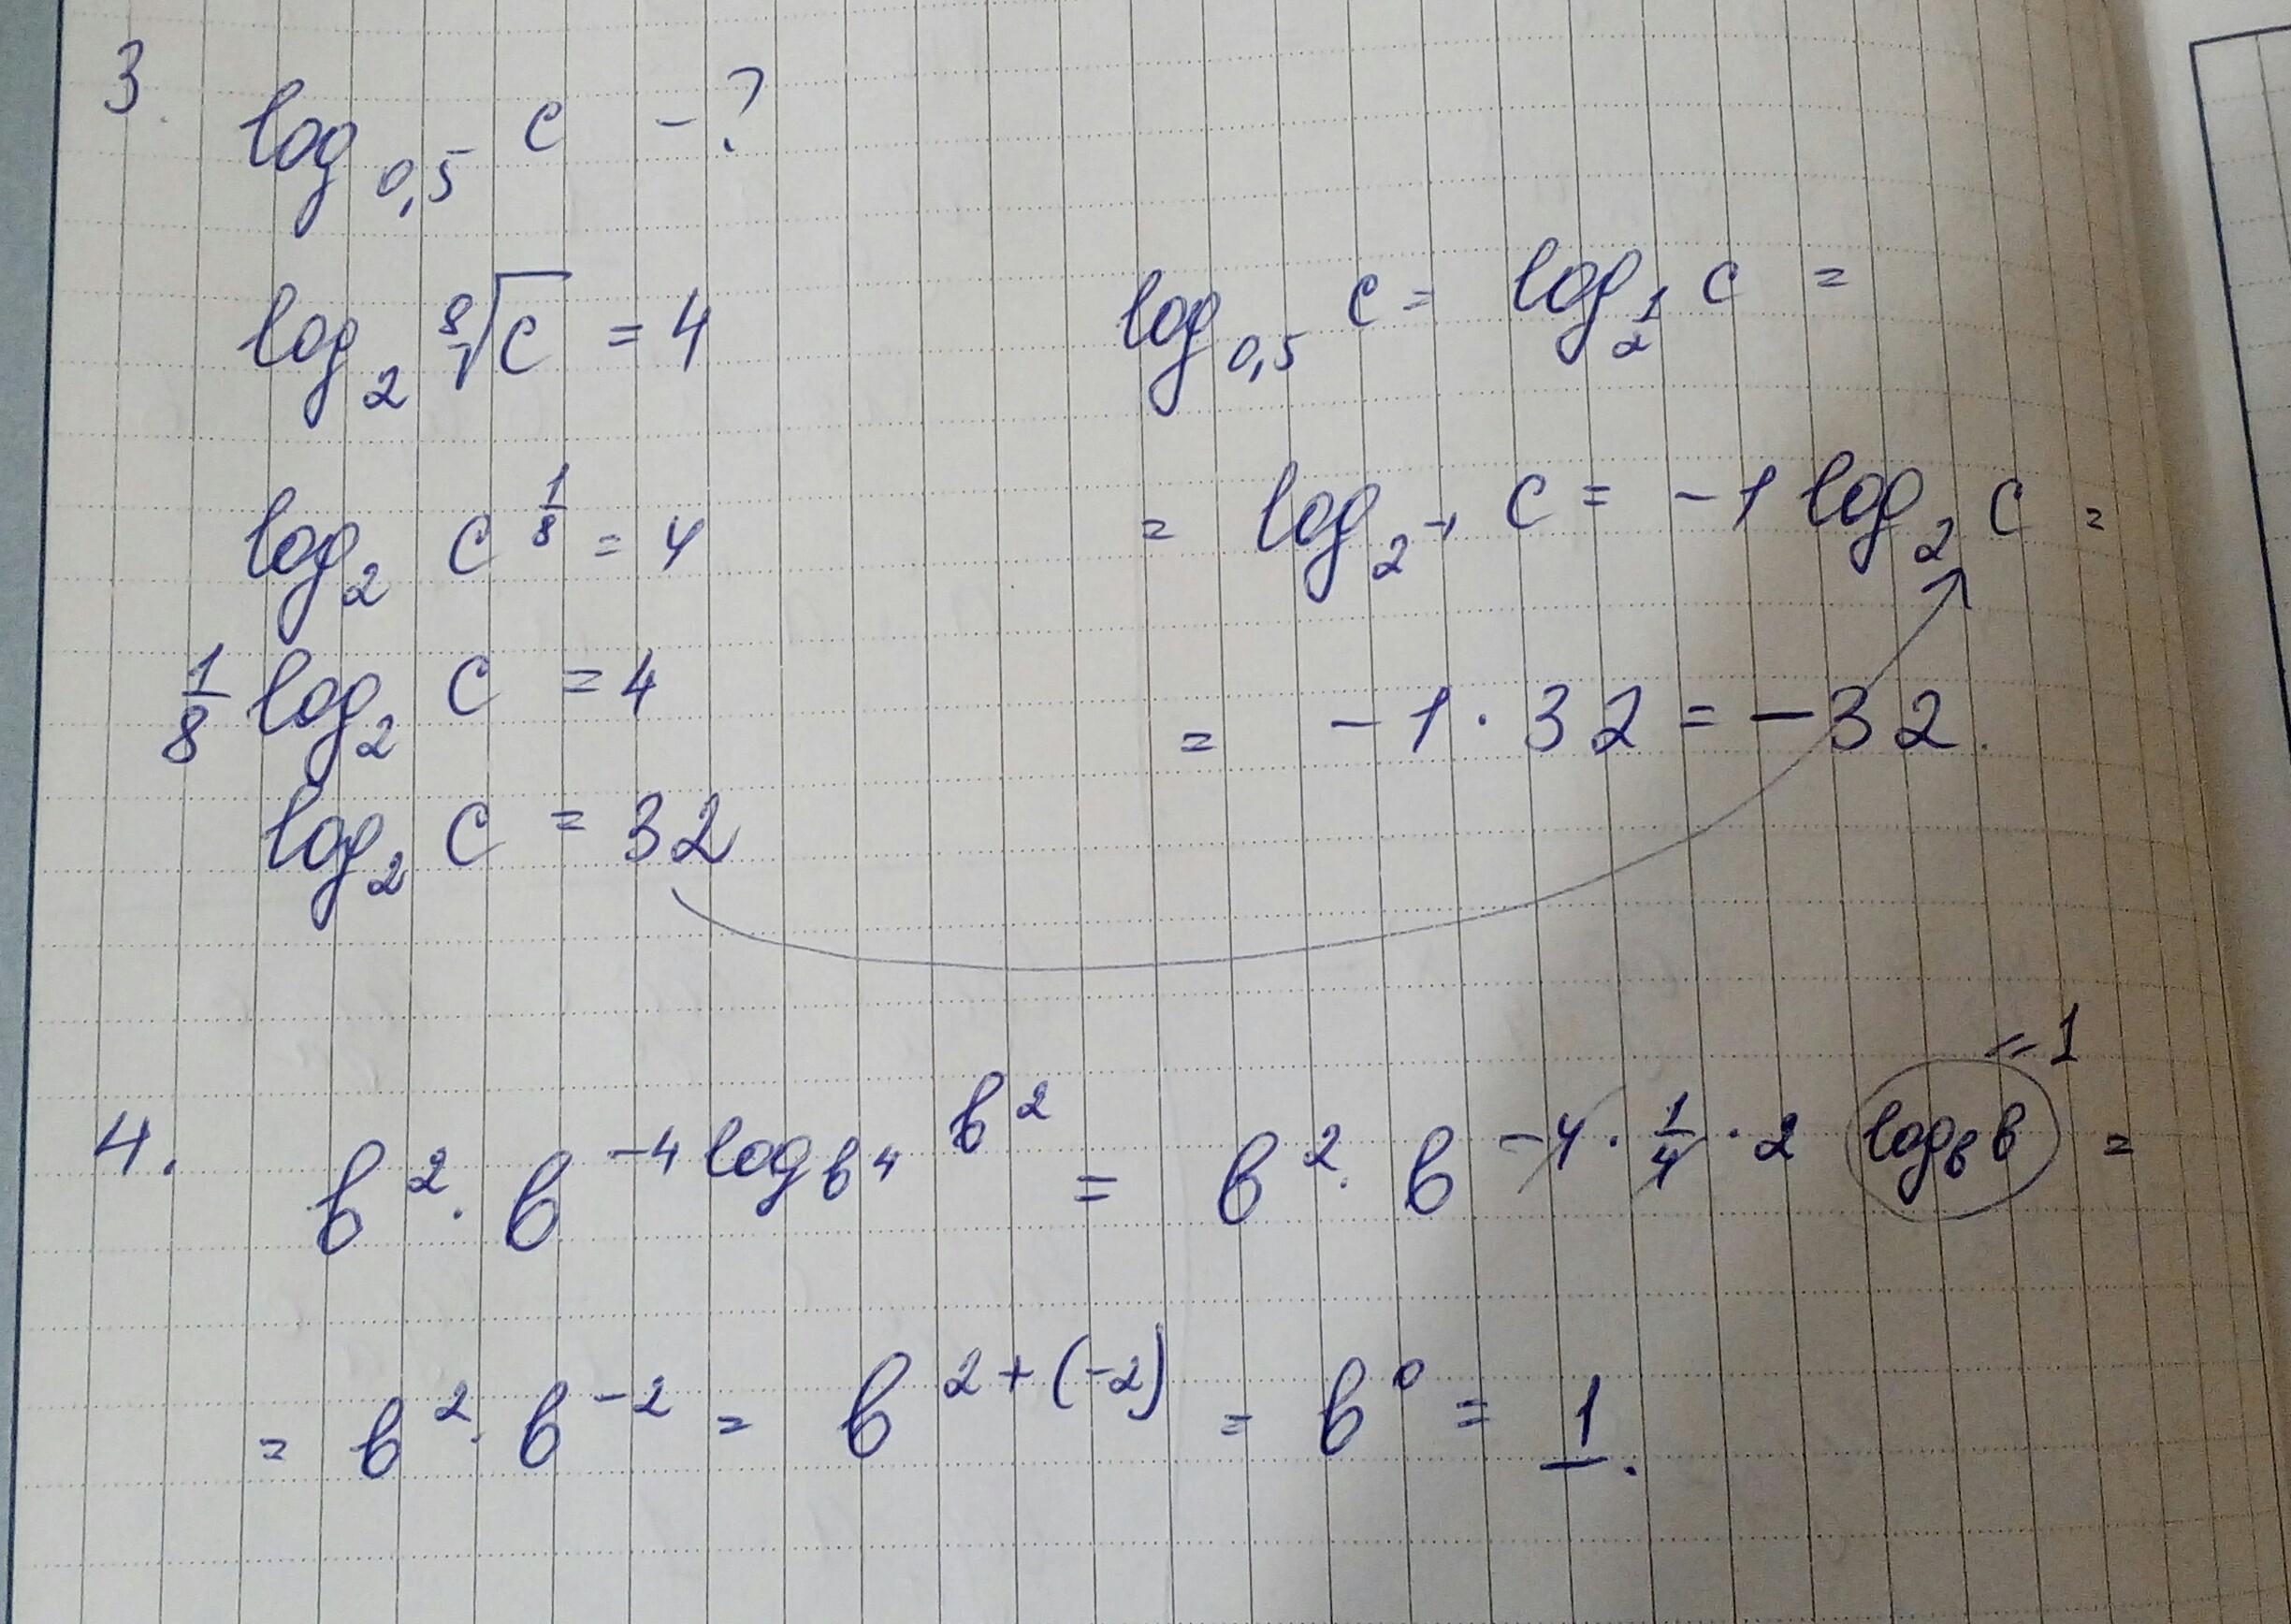 3. log₀,₅ c – ?
log₂ ⁸√c = 4
log₂ c^(1/8) = 4
1/8 log₂ c = 4
log₂ c = 32
log₀,₅ c = log_(1/2) c =
= log_(2⁻¹) c = –1 log₂ c =
= –1 · 32 = –32.
4. b² · b^(–4 log_(b⁴) b²) = b² · b^(–4 · 1/4 · 2 log_b b) = =1
= b² · b⁻² = b^(2+(–2)) = b⁰ = 1.